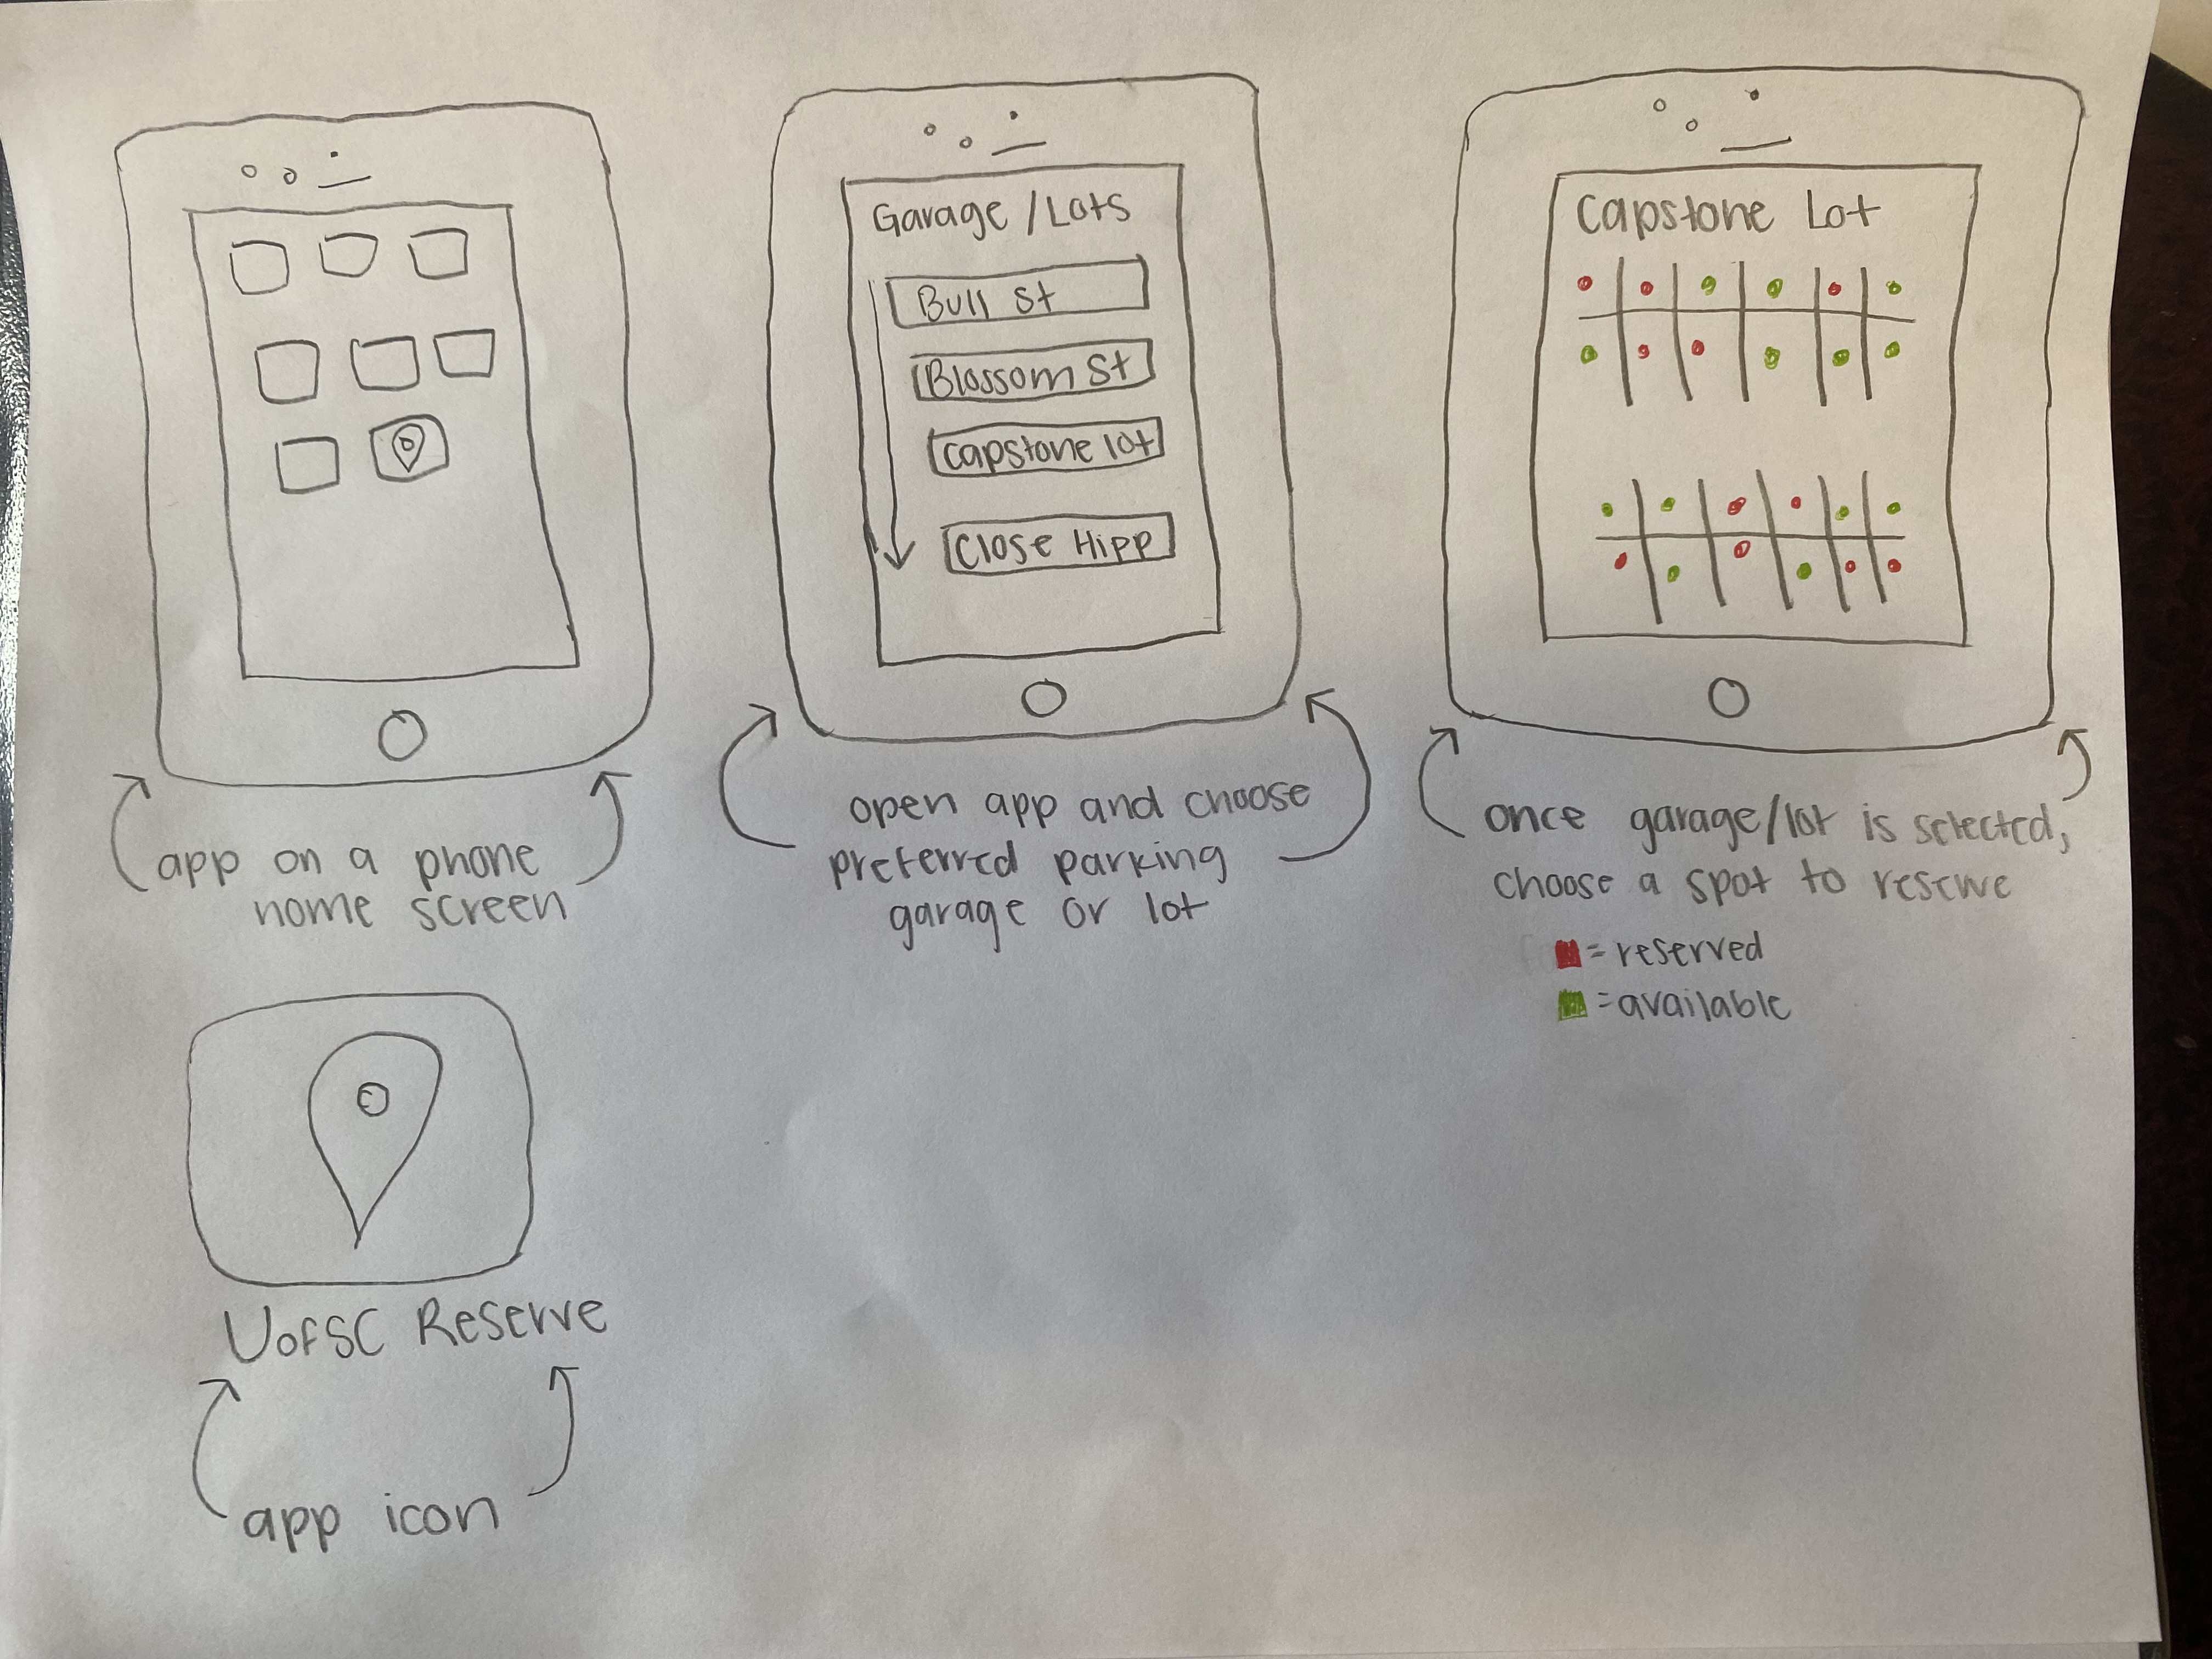 app on a phone
home screen
UofSC Reserve
app icon
Garage/Lots
Bull St
Blossom St
Capstone lot
Close Hipp
open app and choose
preferred parking
garage or lot
Capstone Lot
once garage/lot is selected,
choose a spot to reserve
= reserved
= available